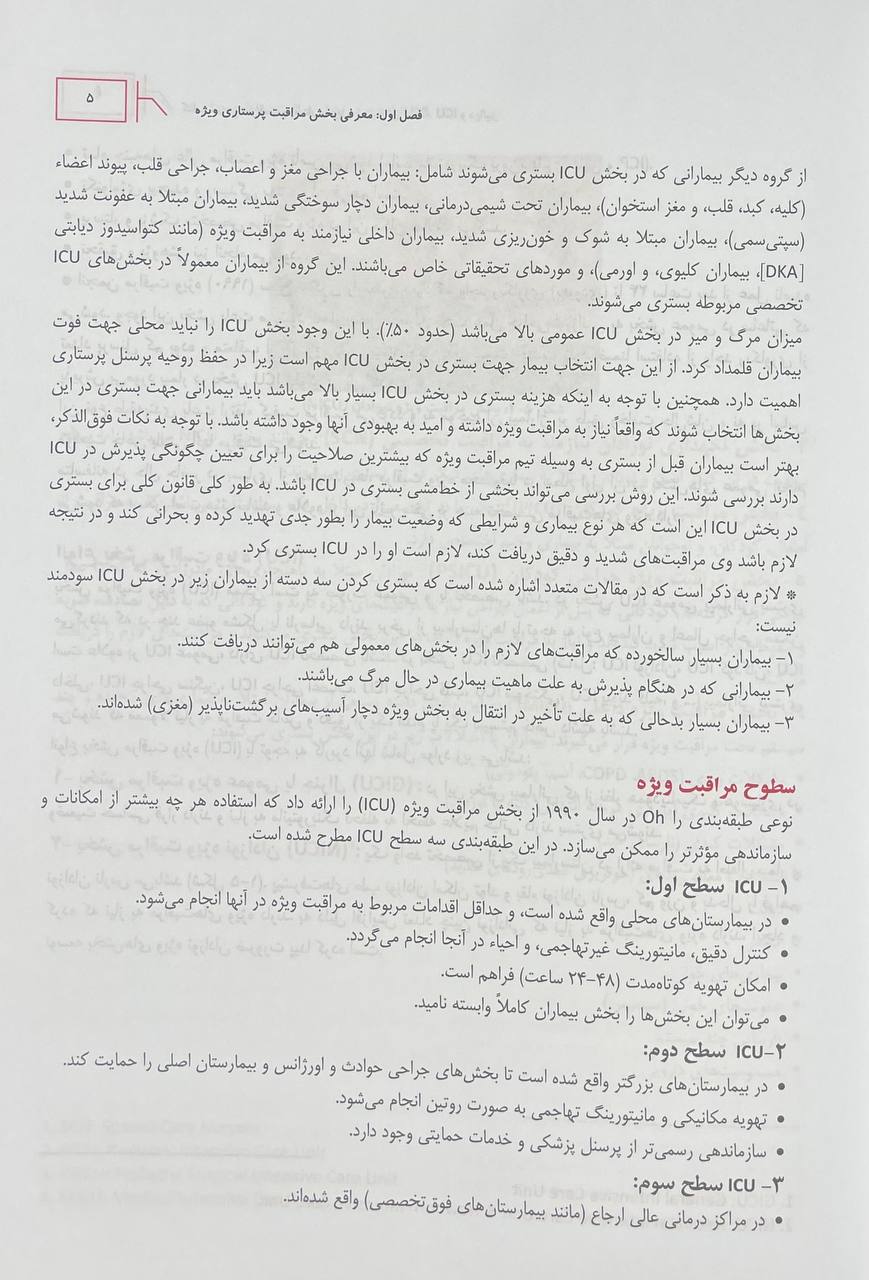 فصل اول: معرفی بخش مراقبت پرستاری ویژه
۵
از گروه دیگر بیمارانی که در بخش ICU بستری می‌شوند شامل: بیماران با جراحی مغز و اعصاب، جراحی قلب، پیوند اعضاء
(کلیه، کبد، قلب، و مغز استخوان)، بیماران تحت شیمی‌درمانی، بیماران دچار سوختگی شدید، بیماران مبتلا به عفونت شدید
(سپتی‌سمی)، بیماران مبتلا به شوک و خون‌ریزی شدید، بیماران داخلی نیازمند به مراقبت ویژه (مانند کتواسیدوز دیابتی
[DKA]، بیماران کلیوی، و اورمی)، و موردهای تحقیقاتی خاص می‌باشند. این گروه از بیماران معمولاً در بخش‌های ICU
تخصصی مربوطه بستری می‌شوند.
میزان مرگ و میر در بخش ICU عمومی بالا می‌باشد (حدود ۵۰٪). با این وجود بخش ICU را نباید محلی جهت فوت
بیماران قلمداد کرد. از این جهت انتخاب بیمار جهت بستری در بخش ICU مهم است زیرا در حفظ روحیه پرسنل پرستاری
اهمیت دارد. همچنین با توجه به اینکه هزینه بستری در بخش ICU بسیار بالا می‌باشد باید بیمارانی جهت بستری در این
بخش‌ها انتخاب شوند که واقعاً نیاز به مراقبت ویژه داشته و امید به بهبودی آنها وجود داشته باشد. با توجه به نکات فوق‌الذکر،
بهتر است بیماران قبل از بستری به وسیله تیم مراقبت ویژه که بیشترین صلاحیت را برای تعیین چگونگی پذیرش در ICU
دارند بررسی شوند. این روش بررسی می‌تواند بخشی از خط‌مشی بستری در ICU باشد. به طور کلی قانون کلی برای بستری
در بخش ICU این است که هر نوع بیماری و شرایطی که وضعیت بیمار را بطور جدی تهدید کرده و بحرانی کند و در نتیجه
لازم باشد وی مراقبت‌های شدید و دقیق دریافت کند، لازم است او را در ICU بستری کرد.
* لازم به ذکر است که در مقالات متعدد اشاره شده است که بستری کردن سه دسته از بیماران زیر در بخش ICU سودمند
نیست:
۱- بیماران بسیار سالخورده که مراقبت‌های لازم را در بخش‌های معمولی هم می‌توانند دریافت کنند.
۲- بیمارانی که در هنگام پذیرش به علت ماهیت بیماری در حال مرگ می‌باشند.
۳- بیماران بسیار بدحالی که به علت تأخیر در انتقال به بخش ویژه دچار آسیب‌های برگشت‌ناپذیر (مغزی) شده‌اند.
سطوح مراقبت ویژه
نوعی طبقه‌بندی را Oh در سال ۱۹۹۰ از بخش مراقبت ویژه (ICU) را ارائه داد که استفاده هر چه بیشتر از امکانات و
سازماندهی مؤثرتر را ممکن می‌سازد. در این طبقه‌بندی سه سطح ICU مطرح شده است.
۱- ICU سطح اول:
• در بیمارستان‌های محلی واقع شده است، و حداقل اقدامات مربوط به مراقبت ویژه در آنها انجام می‌شود.
• کنترل دقیق، مانیتورینگ غیرتهاجمی، و احیاء در آنجا انجام می‌گردد.
• امکان تهویه کوتاه‌مدت (۴۸-۲۴ ساعت) فراهم است.
• می‌توان این بخش‌ها را بخش بیماران کاملاً وابسته نامید.
۲-ICU سطح دوم:
• در بیمارستان‌های بزرگتر واقع شده است تا بخش‌های جراحی حوادث و اورژانس و بیمارستان اصلی را حمایت کند.
• تهویه مکانیکی و مانیتورینگ تهاجمی به صورت روتین انجام می‌شود.
• سازماندهی رسمی‌تر از پرسنل پزشکی و خدمات حمایتی وجود دارد.
۳- ICU سطح سوم:
• در مراکز درمانی عالی ارجاع (مانند بیمارستان‌های فوق‌تخصصی) واقع شده‌اند.